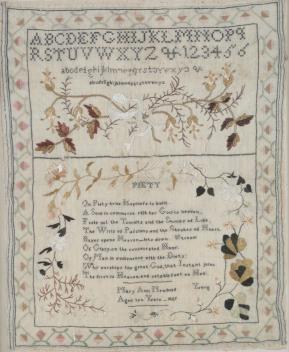 ABCDEFGHIJKLMNOPQ
RSTUVWXYZ & 123456
abcdefghijklmnopqrstuvwxyz &
abcdefghijklmnopqrstuvwxyz
PIETY
On Piety true Happiness is built
A Soul in commerce with her God is heaven
Feels not the Tumults and the Shocks of Life
The Whirls of Passions and the Strokes of Heart
Of Man in audience with the Deity
Who worships the great God, that Instant joins
The first in Heaven and sets his foot on Hell
Mary Ann Young
Aged ten Years